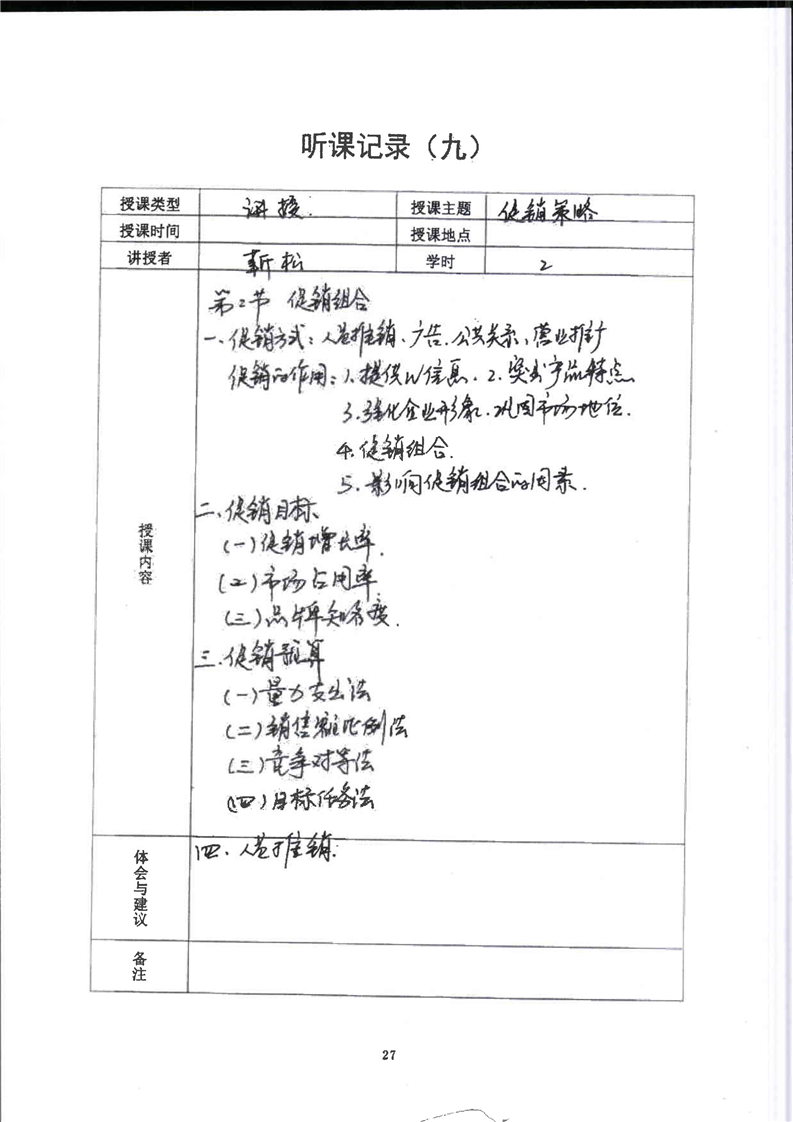 听课记录（九）
授课类型 讲授. 授课主题 促销策略
授课时间 授课地点
讲授者 靳松 学时 2
授课内容
第2节 促销组合
一、促销方式：人员推销、广告、公共关系、营业推广
促销的作用：1.提供信息. 2.突出产品特点
3.强化企业形象、巩固市场地位.
4.促销组合.
5.影响促销组合的因素.
二、促销目标
(一)促销增长率.
(二)市场占用率.
(三)品牌知名度.
三.促销预算
(一)量力支出法
(二)销售额比例法
(三)竞争对等法
(四)目标任务法
体会与建议
四、人员推销.
备注
27